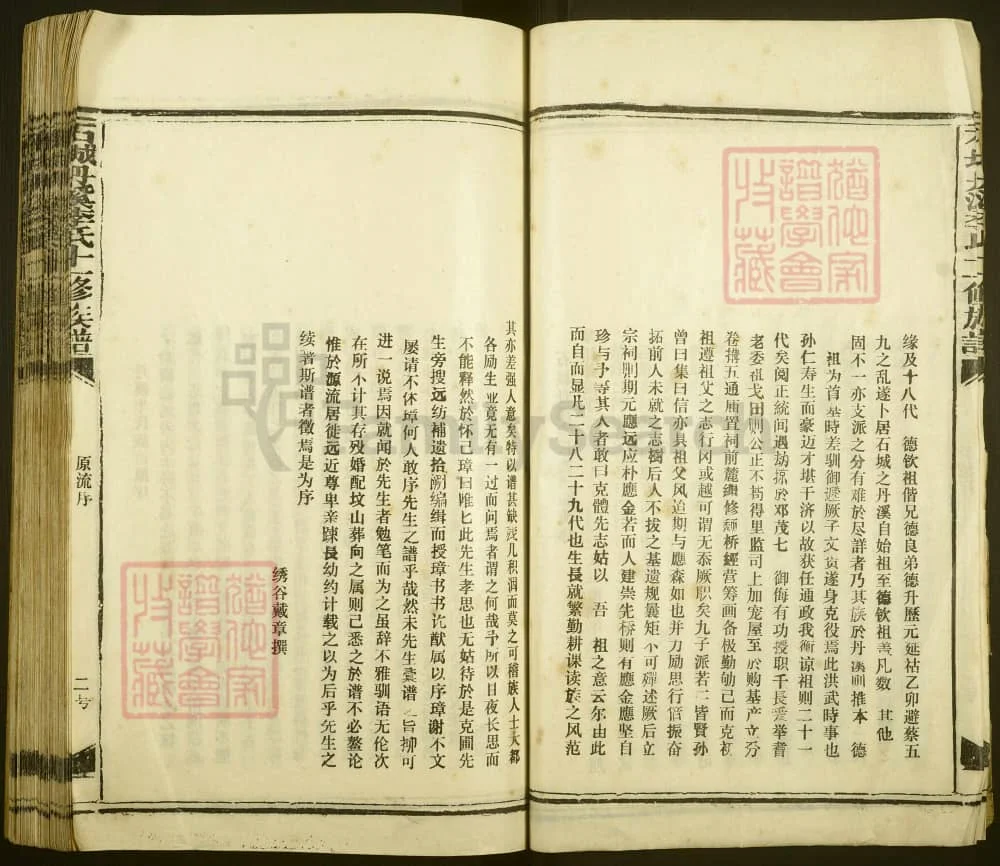 缘及十八代 德钦祖偕兄德良弟德升歷元延祜乙卯避蔡五
九之乱遂卜居石城之丹溪自始祖至德钦祖盖凡数 其他
固不一亦支派之分有难於尽詳者乃其族於丹溪則推本 德
祖为首 時差馴御遂厥子文 遂身克役焉此洪武時事也
孙仁寿生而豪迈才堪干济以故获任通政我 谅祖则二十一
代矣阅正統间遇劫掠於邓茂七 御侮有功授职千長爰举耆
老委祖 田則公正不 得里监司上加宠屋至於购基产立分
卷 五通厢置祠前麓 修 桥經营筹画备极勤劬己而克初
祖遵祖父之志行冈或越可谓无忝厥职矣九子派若二皆賢孙
曾曰集曰信亦具祖父风迨期与應森如也并力励思行 振奋
拓前人未就之志樹后人不拔之基遗规曩矩不可殚述厥后立
宗祠則期元應远应朴應金若而人建崇先桥则有應金應坚自
珍与予等其人者敢曰克體先志姑以 吾 祖之意云尔由此
而自而显凡二十八二十九代也生長就繁勤耕课读族之风范
其亦差强人意矣特以谱甚缺 几积淍而莫之可稽族人士大都
各励生业竟无有一过而问焉者谓之何哉予所以日夜长思而
不能释然於怀己璋曰唯匕此先生孝思也无姑待於是克圃先
生旁搜远纺補遗拾阙编缉而授璋书书 猷属以序璋谢不文
屡请不休璋何人敢序先生之譜乎哉然未先生裳谱之旨抑可
进一说焉因就闻於先生者勉笔而为之虽辞不雅馴语无伦次
在所不计其存殁婚配坟山葬向之属则己悉之於谱不必鳌论
惟於源流居徙远近尊卑亲踈長幼约计载之以为后乎先生之
续譜斯谱者徵焉是为序
绣谷戴章撰
石城丹溪李氏十一修族譜
原流序
二号